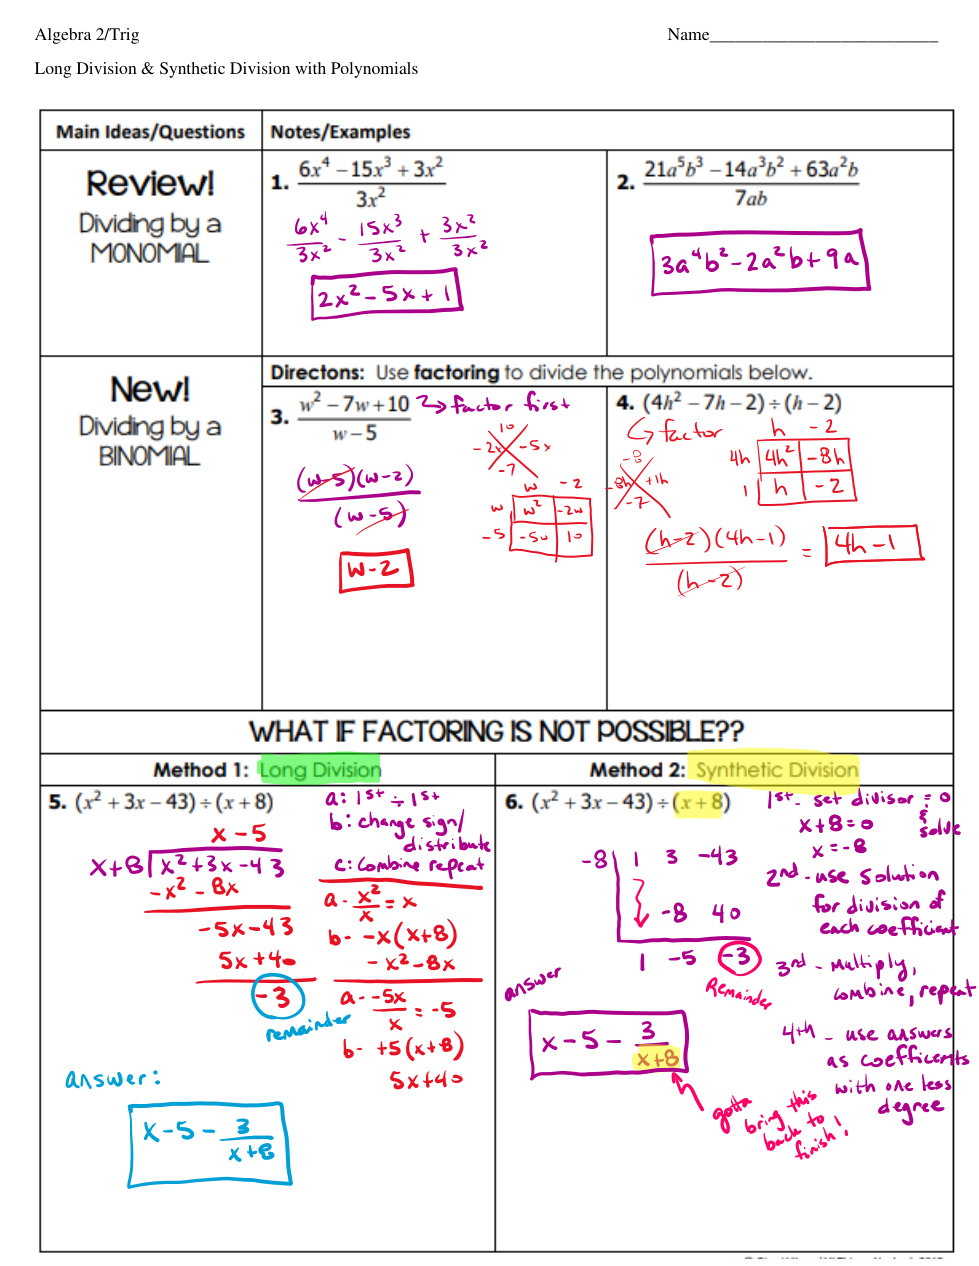 Algebra 2/Trig
Name__________________________
Long Division & Synthetic Division with Polynomials
Main Ideas/Questions
Notes/Examples
Review!
Dividing by a
MONOMIAL
1. (6x⁴ − 15x³ + 3x²)/(3x²)
6x⁴/3x² - 15x³/3x² + 3x²/3x²
2x² - 5x + 1
2. (21a⁵b³ − 14a³b² + 63a²b)/(7ab)
3a⁴b² - 2a²b + 9a
New!
Dividing by a
BINOMIAL
Directons: Use factoring to divide the polynomials below.
3. (w² − 7w + 10)/(w − 5)
factor first
10
-2x -5x
-7
w -2
w w² -2w
-5 -5w 10
(w-5)(w-2)
(w-5)
w-2
4. (4h² − 7h − 2) ÷ (h − 2)
factor
-8
-8h +1h
-7
h -2
4h 4h² -8h
1 h -2
(h-2)(4h-1)
(h-2)
= 4h-1
WHAT IF FACTORING IS NOT POSSIBLE??
Method 1: Long Division
Method 2: Synthetic Division
5. (x² + 3x − 43) ÷ (x + 8)
a: 1st ÷ 1st
b: change sign/
distribute
c: combine repeat
x - 5
x+8 x²+3x-43
-x² - 8x
-5x-43
5x+40
-3
remainder
a- x²/x = x
b- -x(x+8)
-x²-8x
a- -5x/x = -5
b- +5(x+8)
5x+40
answer:
x-5- 3/(x+8)
6. (x² + 3x − 43) ÷ (x + 8)
1st- set divisor = 0
& solve
x+8=0
x=-8
-8 1 3 -43
-8 40
1 -5 -3
Remainder
2nd - use solution
for division of
each coefficient
3rd - multiply,
combine, repeat
4th - use answers
as coefficents
with one less
degree
answer
x-5- 3/(x+8)
gotta
bring this
back to
finish!